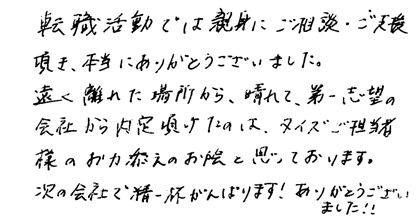 転職活動では親身にご相談・ご支援
頂き、本当にありがとうございました。
遠く離れた場所から、晴れて、第一志望の
会社から内定頂けたのは、タイズご担当者
様のお力添えのお陰と思っております。
次の会社で精一杯がんばります！ありがとうござい
ました!!